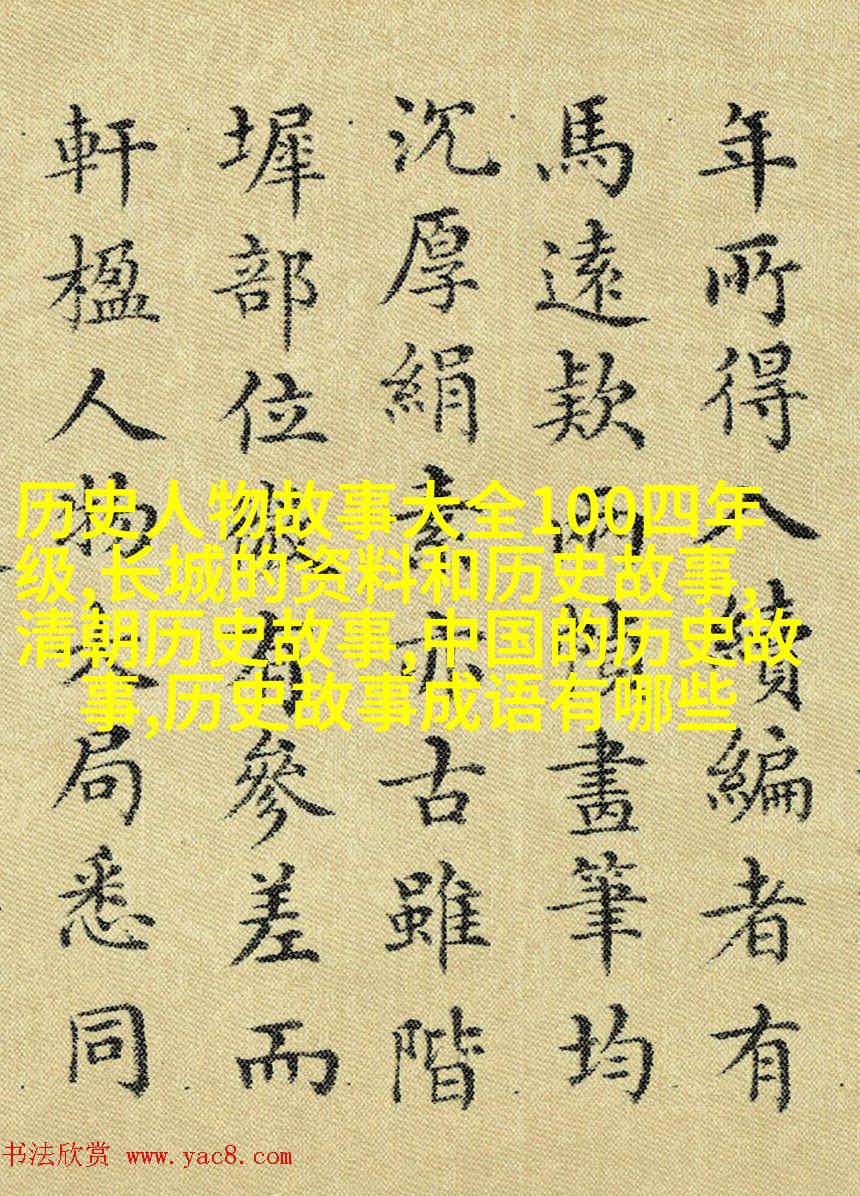 年所得入續編者有
馬遠款畫筆均
沉厚絹素亦古雖階
墀部位有參差而
軒楹人物大局悉同
历史人物故事大全100四年
级,长城的资料和历史故事,
清朝历史故事,中国的历史故
事,历史故事成语有哪些
书法欣赏 www.yac8.com